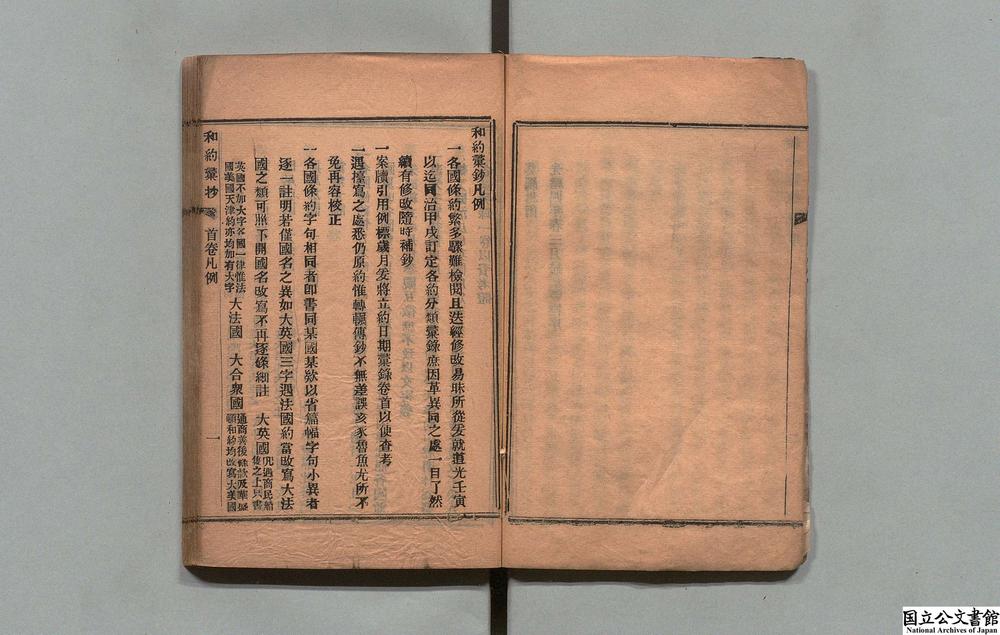 和約彙鈔凡例
一各國條約繁多驟難檢閱且迭經修改易昧所從爰就道光壬寅
以迄同治甲戌訂定各約分類彙錄庶因革異同之處一目了然
續有修改隨時補鈔
一案牘引用例標歲月爰將立約日期彙錄卷首以便查考
一遇擡寫之處悉仍原約惟轉輾傳鈔不無差誤亥豕魯魚尤所不
免再容校正
一各國條約字句相同者卽書同某國某款以省篇幅字句小異者
逐一註明若僅國名之異如大英國三字遇法國約當改寫大法
國之類可照下開國名改寫不再逐條細註 大英國凡遇商民船隻之上只書
英國不加大字各國一律惟法國美國天津約亦均加有大字 大法國 大合衆國通商善後條款及華盛頓和約均改寫大美國
和約彙抄 首卷凡例 一
国立公文書館
National Archives of Japan